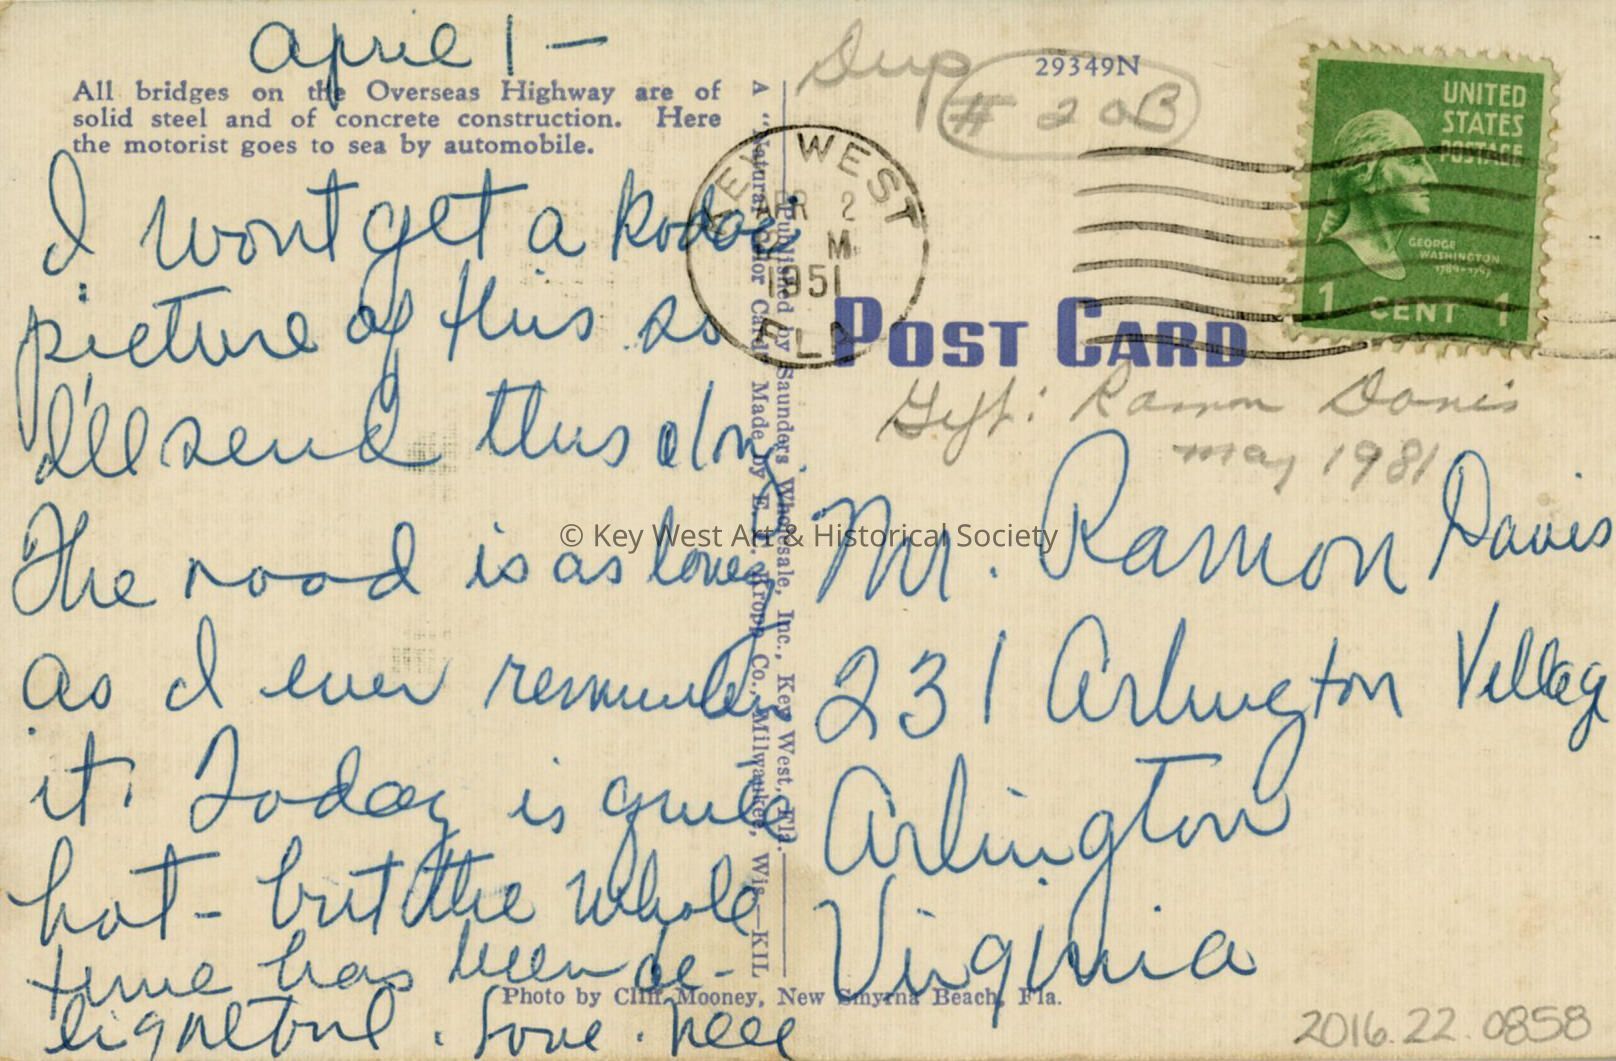 April 1 —
All bridges on the Overseas Highway are of
solid steel and of concrete construction. Here
the motorist goes to sea by automobile.
I wont get a
picture of this so
I'll send this along
The road is as lovely
as I ever remember
it. Today is quite
hot - but the whole
time has been de-
lightful. Love.
A "Natural Color Card" Made by E. C. Kropp Co., Milwaukee, Wis.—KIL
Published by Saunders Wholesale, Inc., Key West, Fla.
Photo by Cliff Mooney, New Smyrna Beach, Fla.
Dup
# 20B
29349N
KEY WEST
APR 2
M
1951
FLA
UNITED
STATES
POSTAGE
GEORGE
WASHINGTON
1789-1797
1 CENT 1
POST CARD
Gift: Ramon Davis
May 1981
Mr. Ramon Davis
231 Arlington Village
Arlington
Virginia
© Key West Art & Historical Society
2016.22.0858